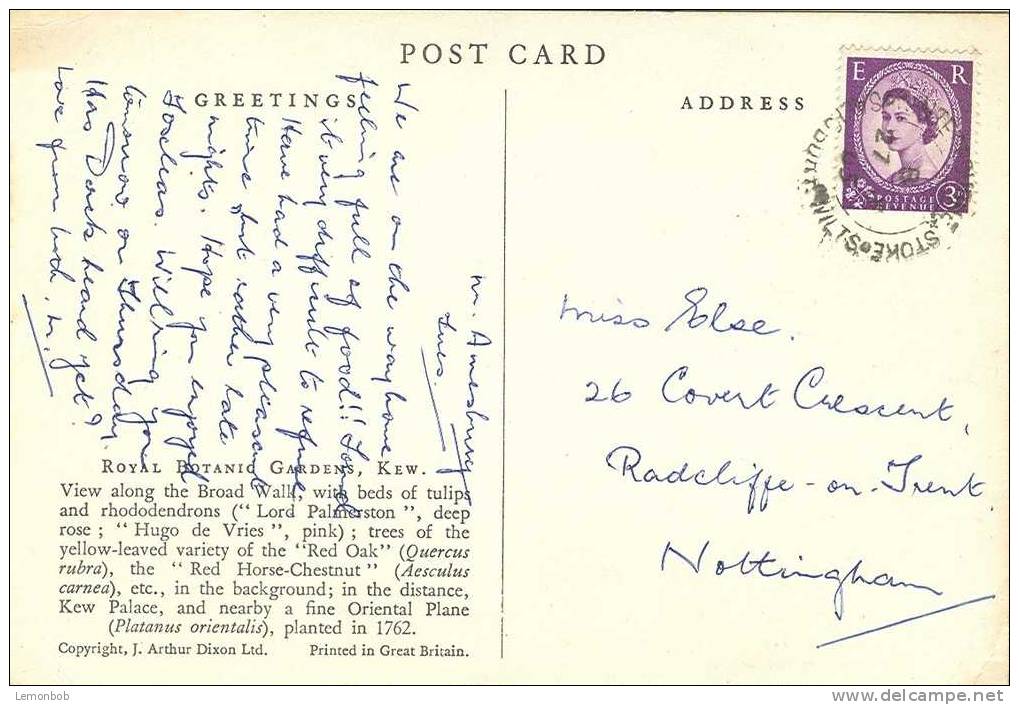 POST CARD
GREETINGS
nr. Amesbury
Tues.
We are on the way home
feeling full of food!! Found
it very difficult to refuse
Have had a very pleasant
time but rather late
nights. Hope you enjoyed
Toscleas. Will ring you
tomorrow or Thursday.
Has Dark heard yet?
Love from both, M.
ROYAL BOTANIC GARDENS, KEW.
View along the Broad Walk, with beds of tulips
and rhododendrons (“Lord Palmerston”, deep
rose; “Hugo de Vries”, pink); trees of the
yellow-leaved variety of the “Red Oak” (Quercus
rubra), the “Red Horse-Chestnut” (Aesculus
carnea), etc., in the background; in the distance,
Kew Palace, and nearby a fine Oriental Plane
(Platanus orientalis), planted in 1762.
Copyright, J. Arthur Dixon Ltd. Printed in Great Britain.
ADDRESS
E R
3D
POSTAGE
REVENUE
STOKE
WILTS
27
Miss Else.
26 Covert Crescent,
Radcliffe-on-Trent
Nottingham
Lemonbob
www.delcampe.net